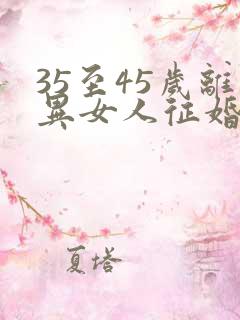 35至45歲離
異女人征婚
夏塔